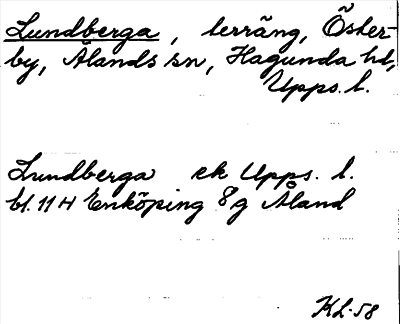 Lundberga, terräng, Öster-
by, Ålands sn, Hagunda hd,
Upps. l.
Lundberga ek Upps. l.
bl. 11 H Enköping 8g Åland
KL-58